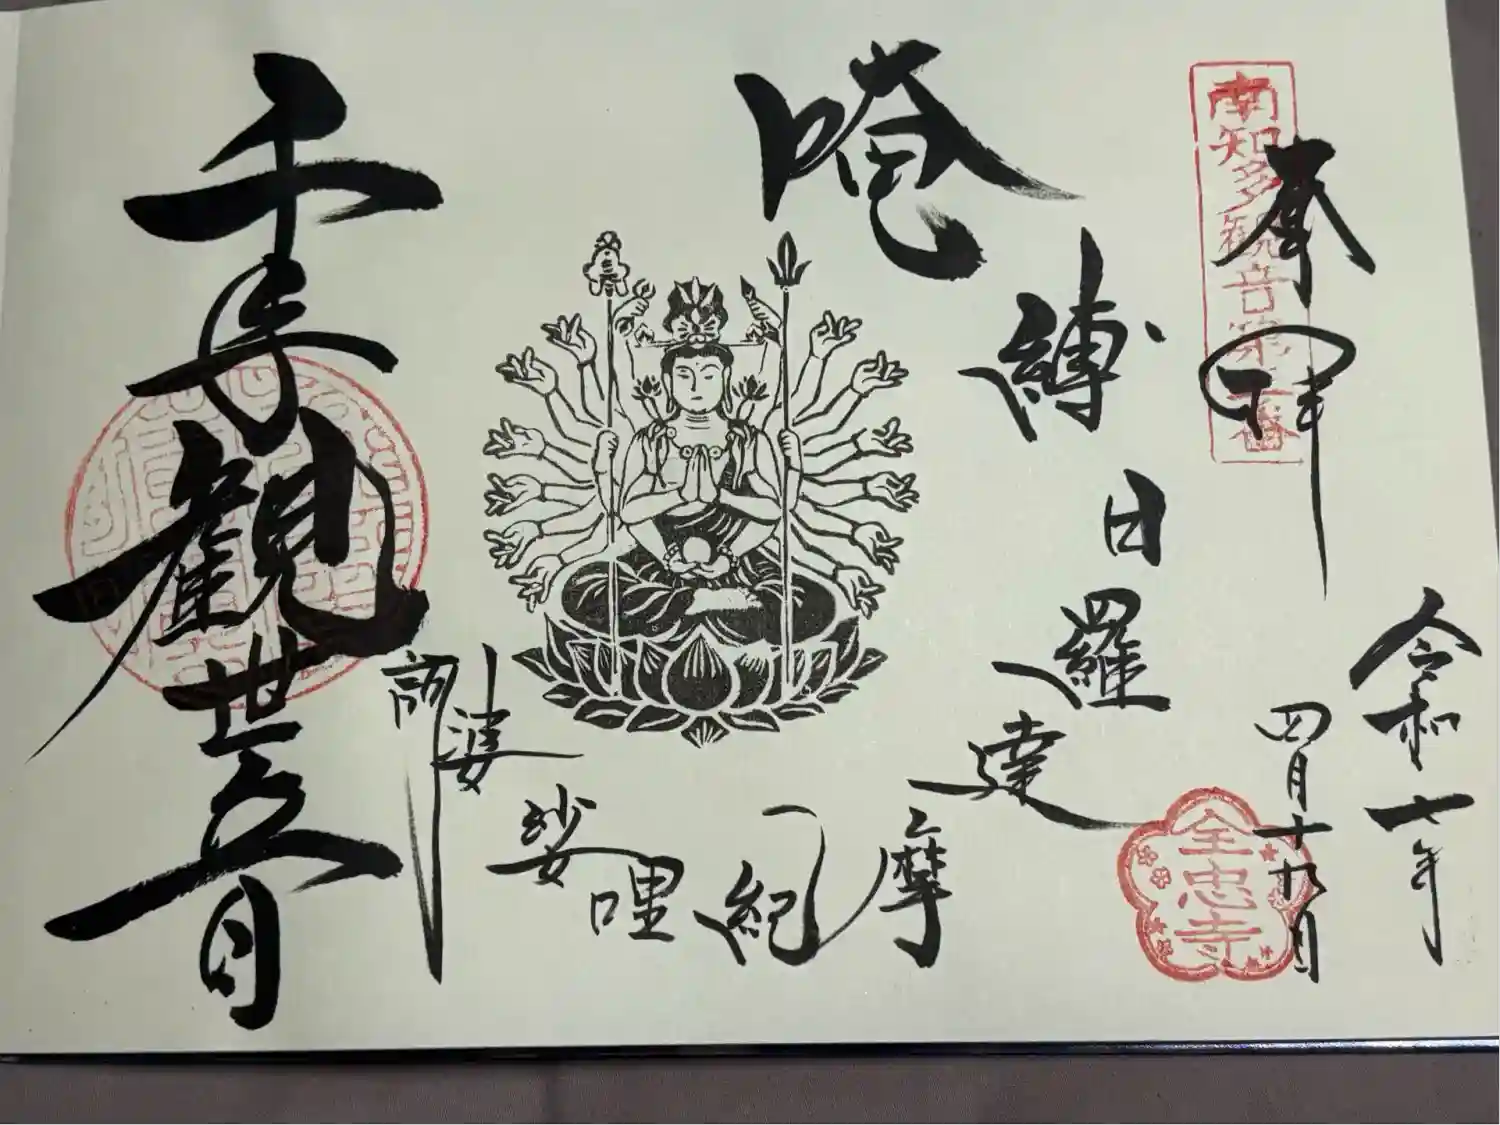 奉拝
南知多観音第一番
令和七年
四月十九日
全忠寺
唵
縛
日
羅
達
摩
紇
哩
娑婆訶
千手観世音